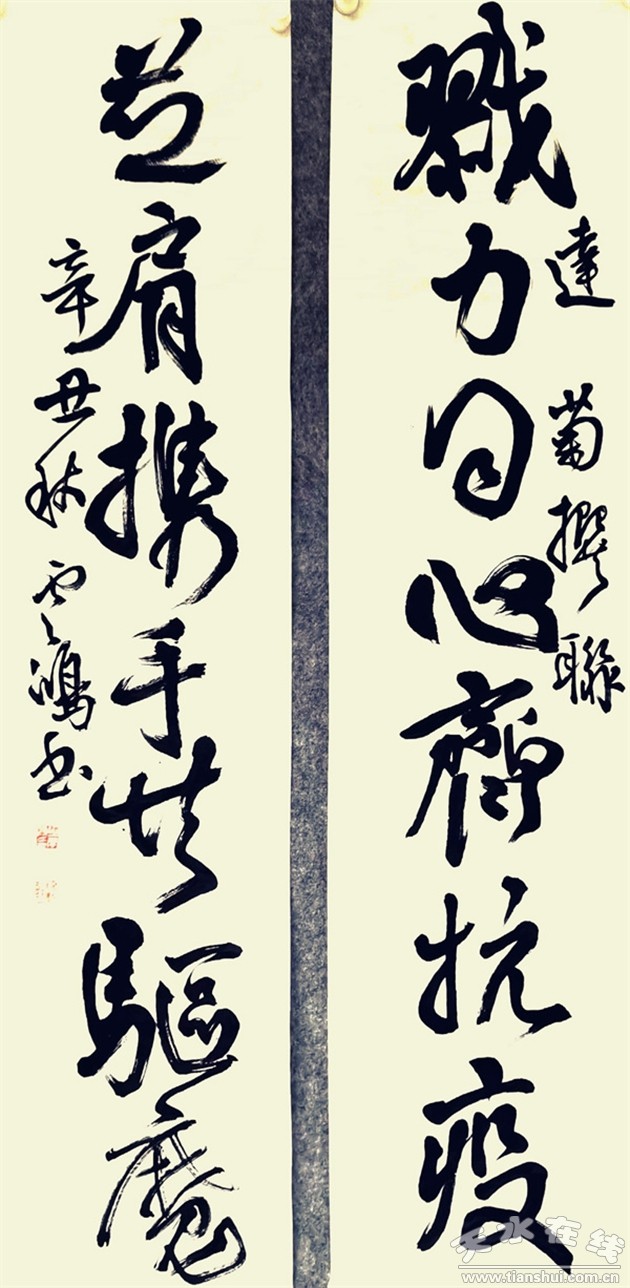 戮力同心齊抗疫
達菊撰聯
並肩攜手共驅魔
辛丑秋雲鴻書
天水在线
www.tianshui.com.cn